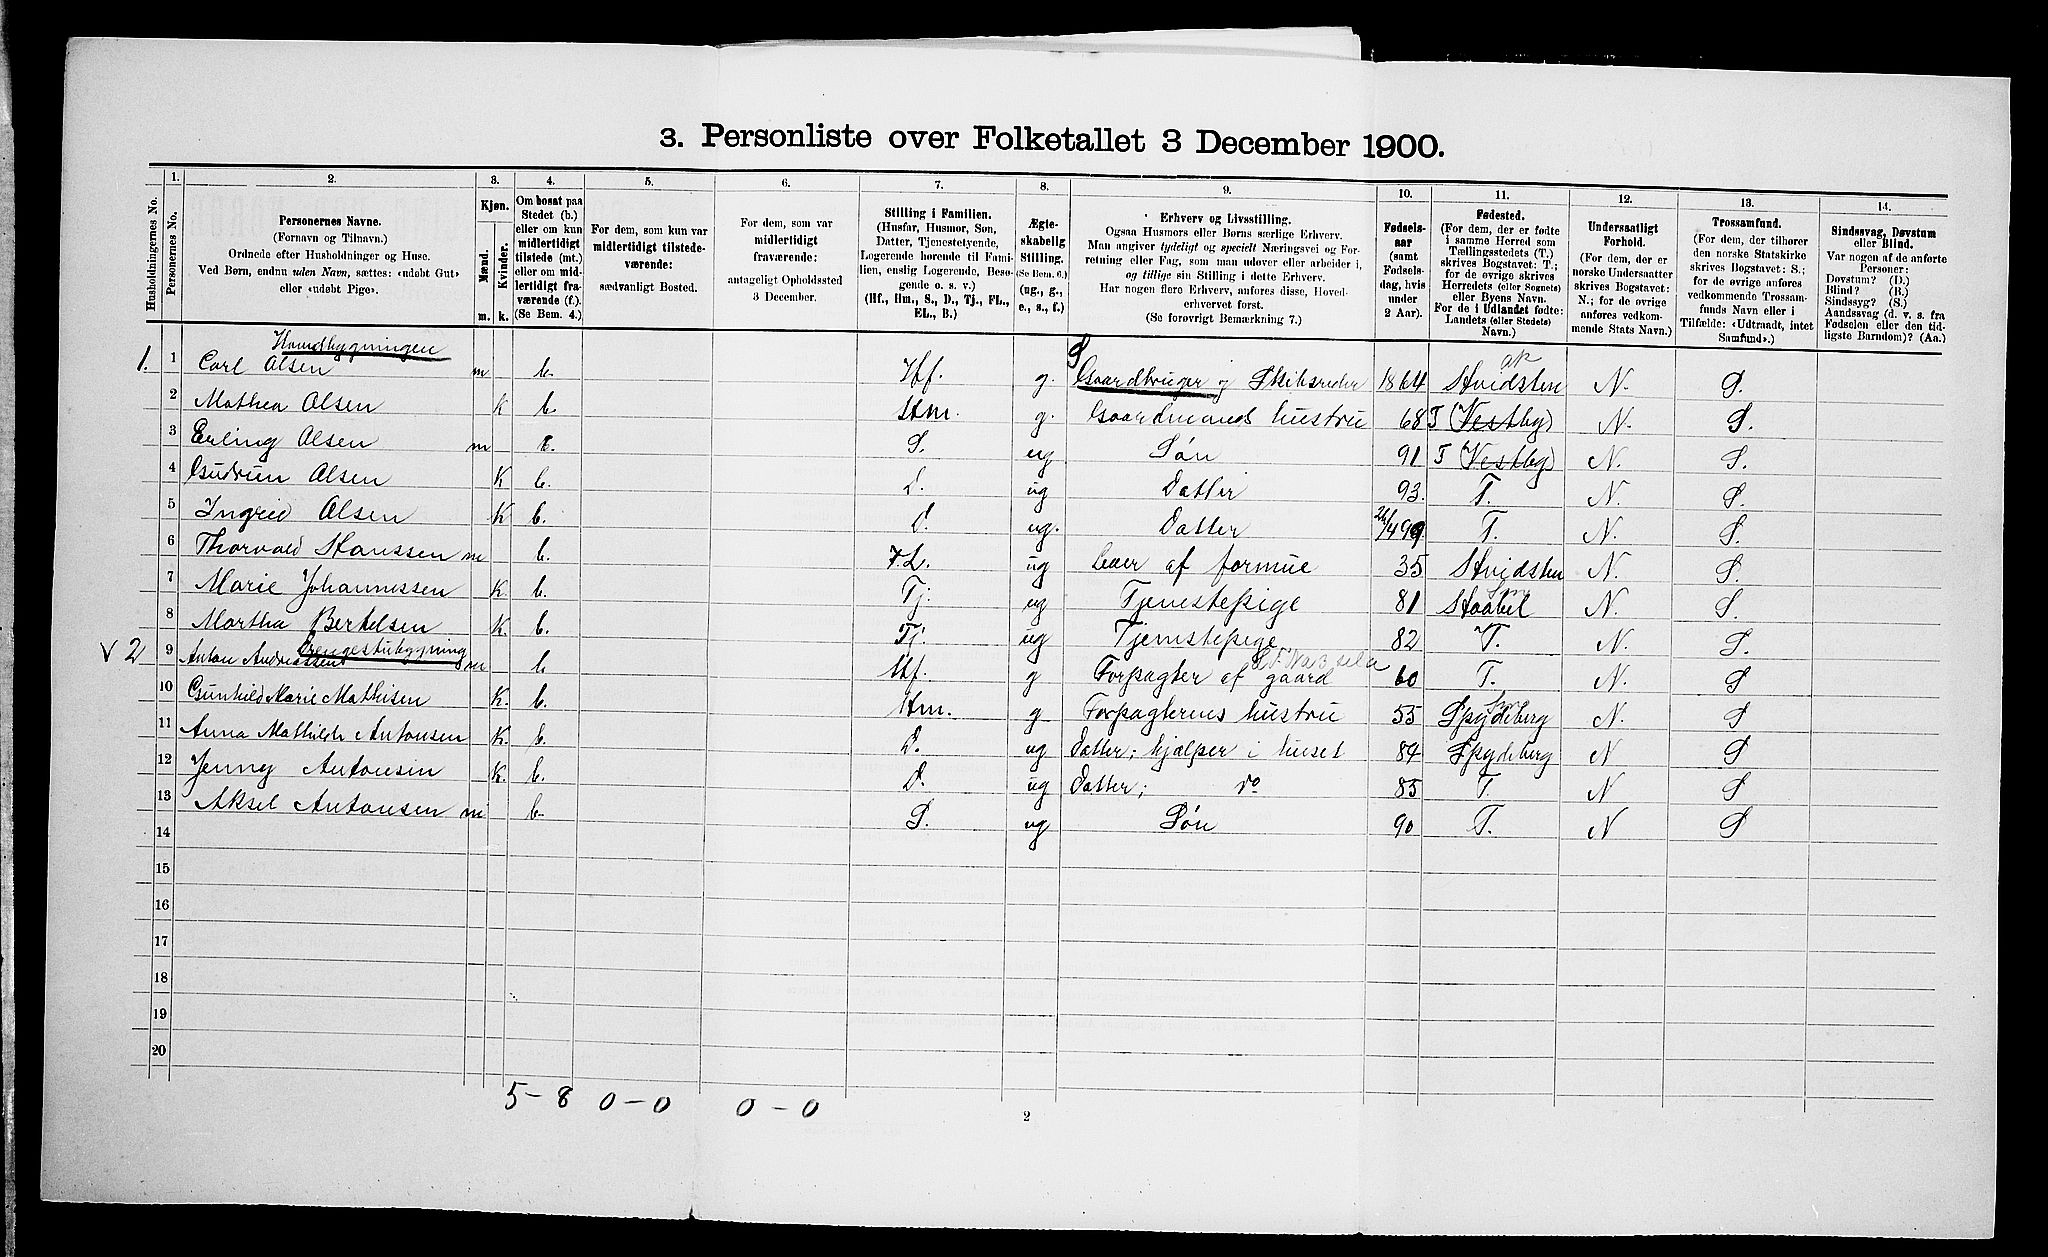 3. Personliste over Folketallet 3 December 1900.
Husholdningernes No.
1. Personernes No.
2. Personernes Navne. (Fornavn og Tilnavn.) Ordnede efter Husholdninger og Huse. Ved Børn, endnu uden Navn, sættes: «udøbt Gut» eller «udøbt Pige».
3. Kjøn. Mænd. m. Kvinder. k.
4. Om bosat paa Stedet (b.) eller om kun midlertidigt tilstede (mt.) eller om midlertidigt fraværende (f.). (Se Bem. 4.)
5. For dem, som kun var midlertidigt tilstedeværende: sædvanligt Bosted.
6. For dem, som var midlertidigt fraværende: antageligt Opholdssted 3 December.
7. Stilling i Familien. (Husfar, Husmor, Søn, Datter, Tjenestetyende, Logerende hørende til Familien, enslig Logerende, Besøgende o. s. v.) (Hf., Hm., S., D., Tj., FL., EL., B.)
8. Ægteskabelig Stilling. (Se Bem. 6.) (ug., g., e., s., f.)
9. Erhverv og Livsstilling. Ogsaa Husmors eller Børns særlige Erhverv. Man angiver tydeligt og specielt Næringsvei og Forretning eller Fag, som man udøver eller arbeider i, og tillige sin Stilling i dette Erhverv. Har nogen flere Erhverv, anføres disse, Hovederhvervet først. (Se forøvrigt Bemærkning 7.)
10. Fødselsaar (samt Fødselsdag, hvis under 2 Aar).
11. Fødested. (For dem, der er fødte i samme Herred som Tællingsstedets (T.) skrives Bogstavet: T.; for de øvrige skrives Herredets (eller Sognets) eller Byens Navn. For de i Udlandet fødte: Landets (eller Stedets) Navn.)
12. Undersaatligt Forhold. (For dem, der er norske Undersaatter skrives Bogstavet: N.; for de øvrige anføres vedkommende Stats Navn.)
13. Trossamfund. (For dem, der tilhører den norske Statskirke skrives Bogstavet: S.; for de øvrige anføres vedkommende Trossamfunds Navn eller i Tilfælde: «Udtraadt, intet Samfund».)
14. Sindssvag, Døvstum eller Blind. Var nogen af de anførte Personer: Døvstum? (D.) Blind? (B.) Sindssyg? (S.) Aandssvag (d. v. s. fra Fødselen eller den tidligste Barndom)? (Aa.)
Hovedbygningen
1. 1 Carl Olsen m b. Hf. g. Gaardbruger og Skibsreder 1864 Hvidsten N. S.
2 Mathea Olsen k b. Hm. g. Gaardmands hustru 68 T (Vestby) N. S.
3 Erling Olsen m b. S. ug Søn 91 T (Vestby) N. S.
4 Gudrun Olsen K b. D. ug Datter 93. T. N. S.
5 Ingrid Olsen K b. D. ug. Datter 26/4 99 T. N. S.
6 Thorvald Hanssen m b. F.L. ug Lever af formue 35 Hvidsten N. S.
7 Marie Johannessen K. b. Tj. ug Tjenestepige 81 Haabøl N. S.
8 Martha Bertelsen K. b. Tj. ug Tjenestepige 82 T. N. S.
Drengestubygning
v 2 9 Anton Andreassen m b Hf. g Forpagter af gaard 60 T. N. S
10 Gunhild Marie Mathisen K. b. Hm. g Forpagterens hustru 55 Spydeberg N. S
11 Anna Mathilde Antonsen K. b. D. ug Datter; hjælper i huset 84 Spydeberg N S
12 Jenny Antonsen K. b. D. ug Datter; do 85 T. N S
13 Aksel Antonsen m b. S. ug Søn 90 T. N S
14
15
16
17
18
19
20
5 - 8 0 - 0 0 - 0
2